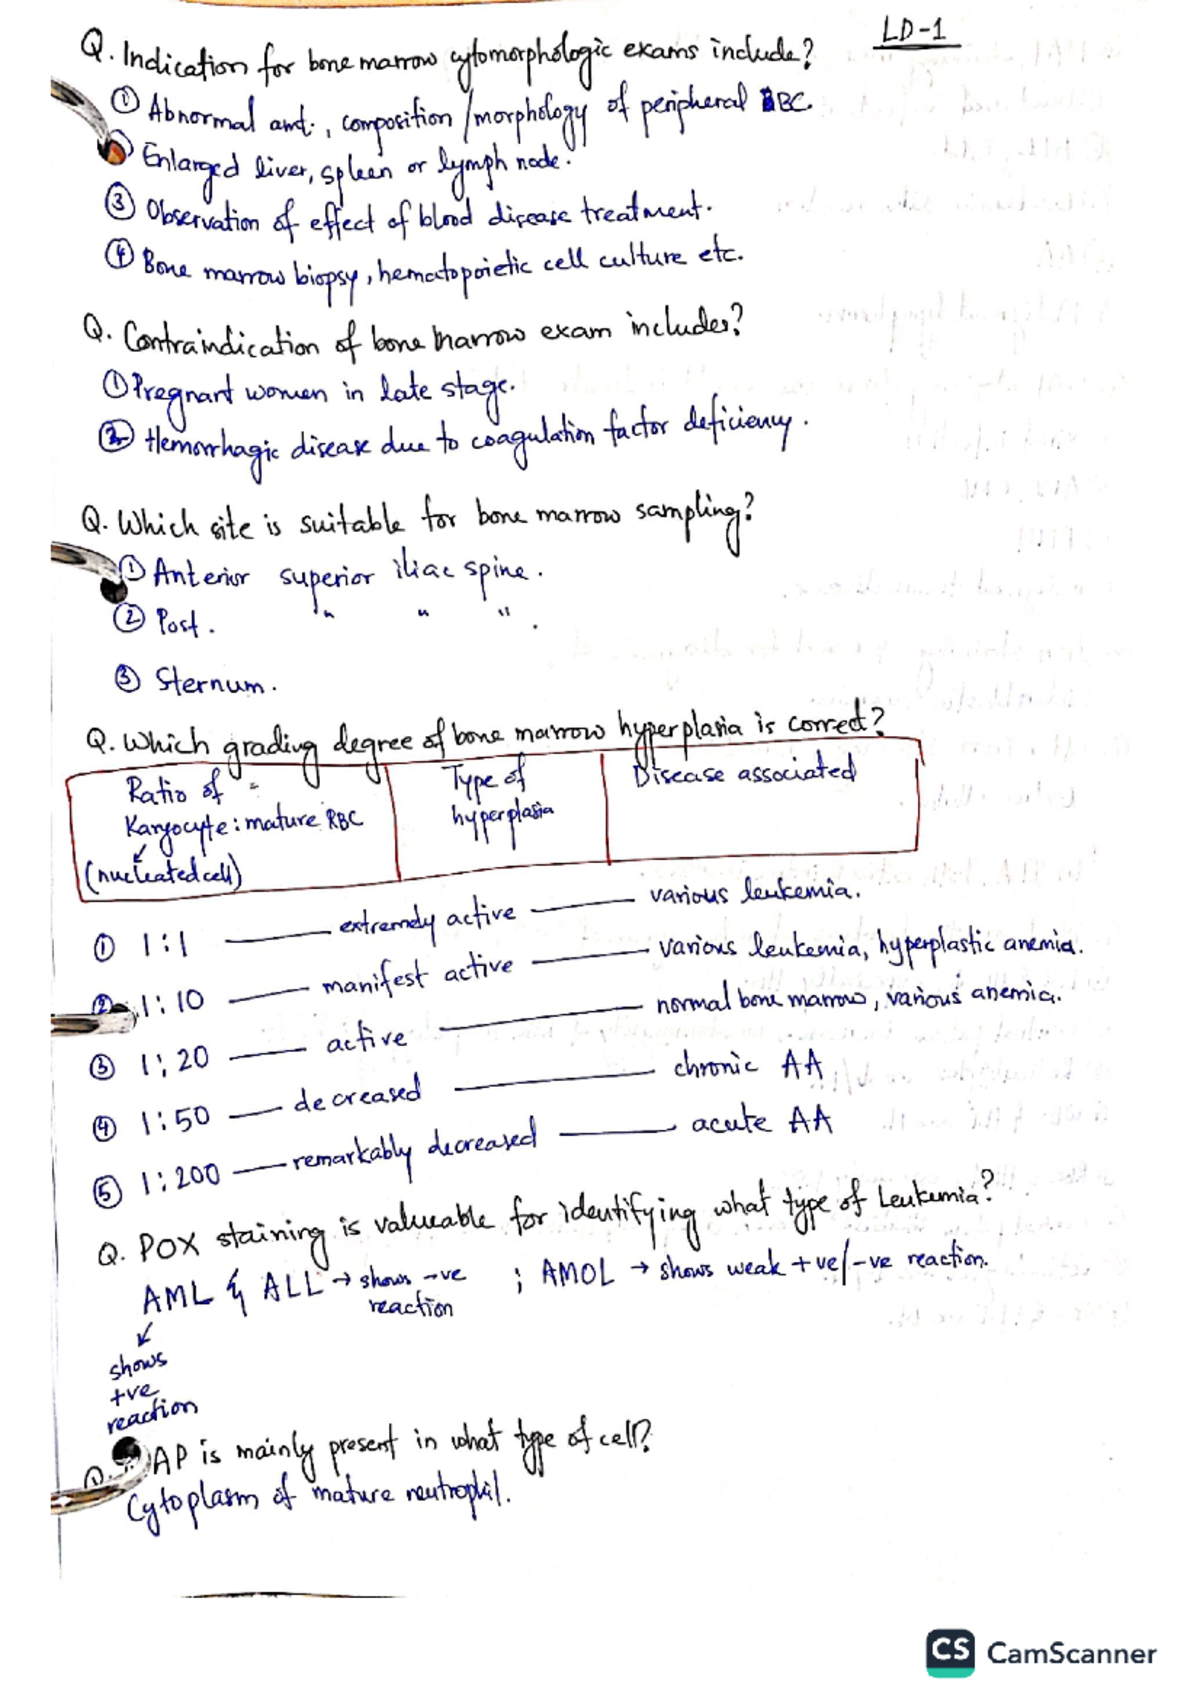 LD-1
Q. Indication for bone marrow cytomorphologic exams include?
① Abnormal amt., composition/morphology of peripheral BC.
Enlarged liver, spleen or lymph node.
③ Observation of effect of blood disease treatment.
④ Bone marrow biopsy, hematopoietic cell culture etc.
Q. Contraindication of bone marrow exam includes?
① Pregnant women in late stage.
② Hemorrhagic disease due to coagulation factor deficiency.
Q. Which site is suitable for bone marrow sampling?
① Anterior superior iliac spine.
② Post. " " " .
③ Sternum.
Q. Which grading degree of bone marrow hyperplasia is correct?
Ratio of Karyocyte : mature RBC
(nucleated cell)
Type of hyperplasia
Disease associated
① 1:1 — extremely active — various leukemia.
② 1:10 — manifest active — various leukemia, hyperplastic anemia.
③ 1:20 — active — normal bone marrow, various anemia.
④ 1:50 — decreased — chronic AA
⑤ 1:200 — remarkably decreased — acute AA
Q. POX staining is valueable for identifying what type of Leukemia?
AML & ALL → shows -ve reaction ; AMOL → shows weak +ve/-ve reaction.
↙
shows
+ve
reaction
Q. AP is mainly present in what type of cell?
Cytoplasm of mature neutrophil.
CS CamScanner